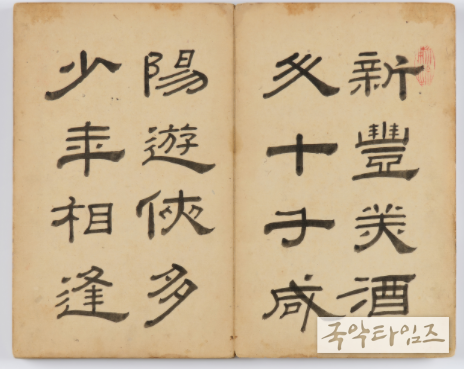 新豐美酒
斗十千咸
陽遊俠多
少年相逢
국악타임즈